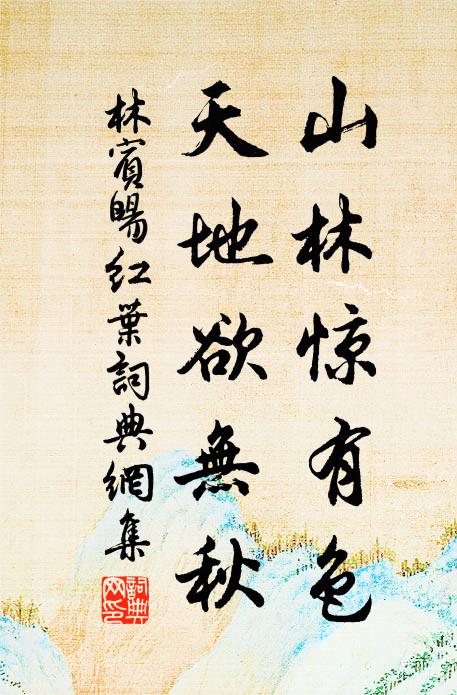 山林惊有色
天地欲無秋
林賓暘红葉詞典網集
詞典网印